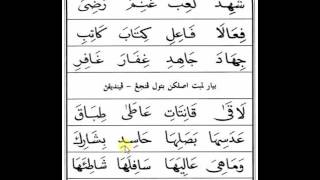 شَهِدَ لَعِبَ غَنِمَ رَضِيَ
فِعَالًا فَاعِلِ كِتَابَ كَاتِبِ
جِهَادَ جَاهِدِ غِفَارَ غَافِرِ
بيار تبت اصلكن بتول ڤنجڠ - ڤينديقڽ
لَاقَىٰ قَانِتَاتَ عَاطَىٰ طِبَاقَ
عَدَسِهَا بَصَلِهَا حَاسِدِ بِشَارِكَ
وَمَاهِيَ عَالِيَهَا سَافِلَهَا شَاطِئَهَا